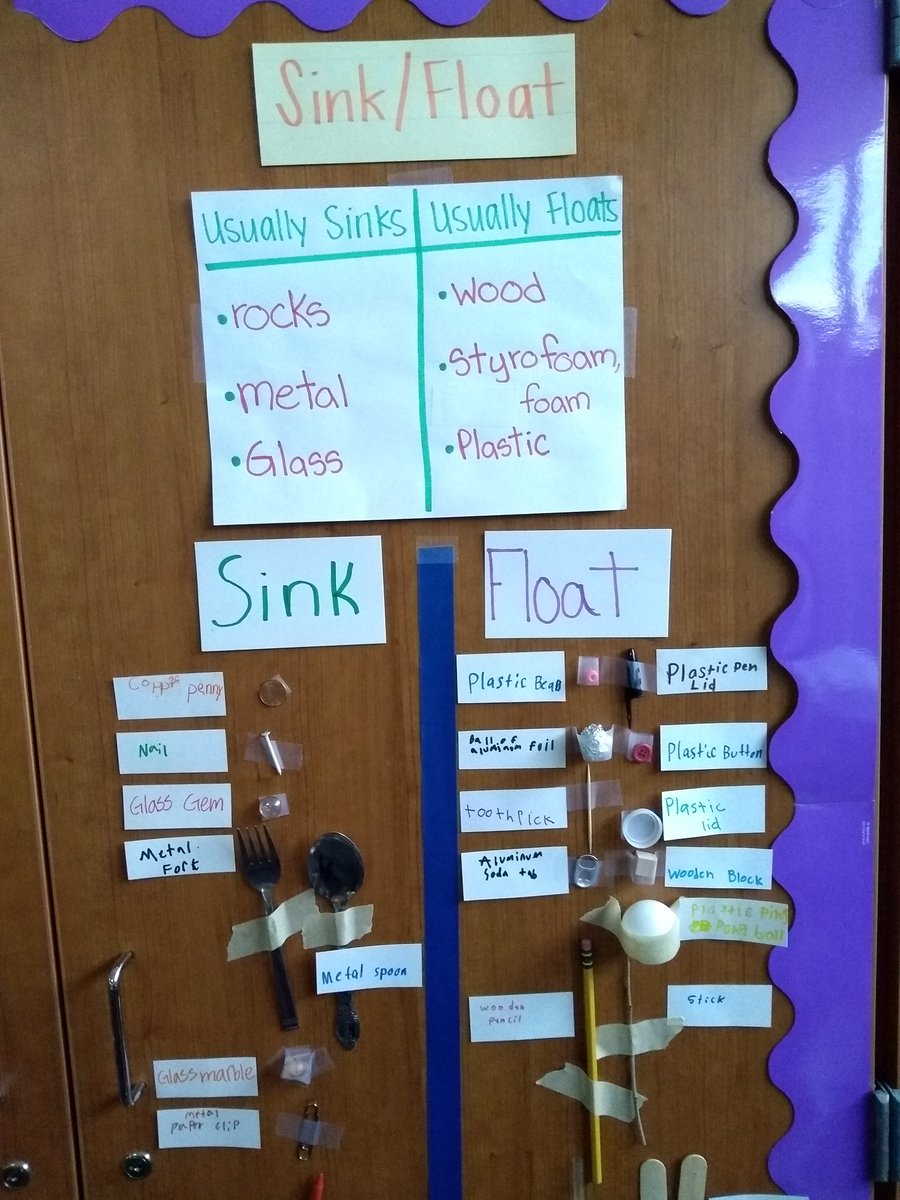 Sink/Float
Usually Sinks
•rocks
•metal
•Glass
Usually Floats
•wood
•styrofoam,
foam
•Plastic
Sink
Float
penny
Nail
Glass Gem
Metal
Fork
Metal spoon
Glass marble
metal
paper clip
Plastic Bead
Plastic Pen
Lid
Ball of
aluminum foil
Plastic Button
toothpick
Plastic
lid
Aluminum
Soda tab
Wooden Block
Plastic Ping
Pong ball
wooden
pencil
Stick